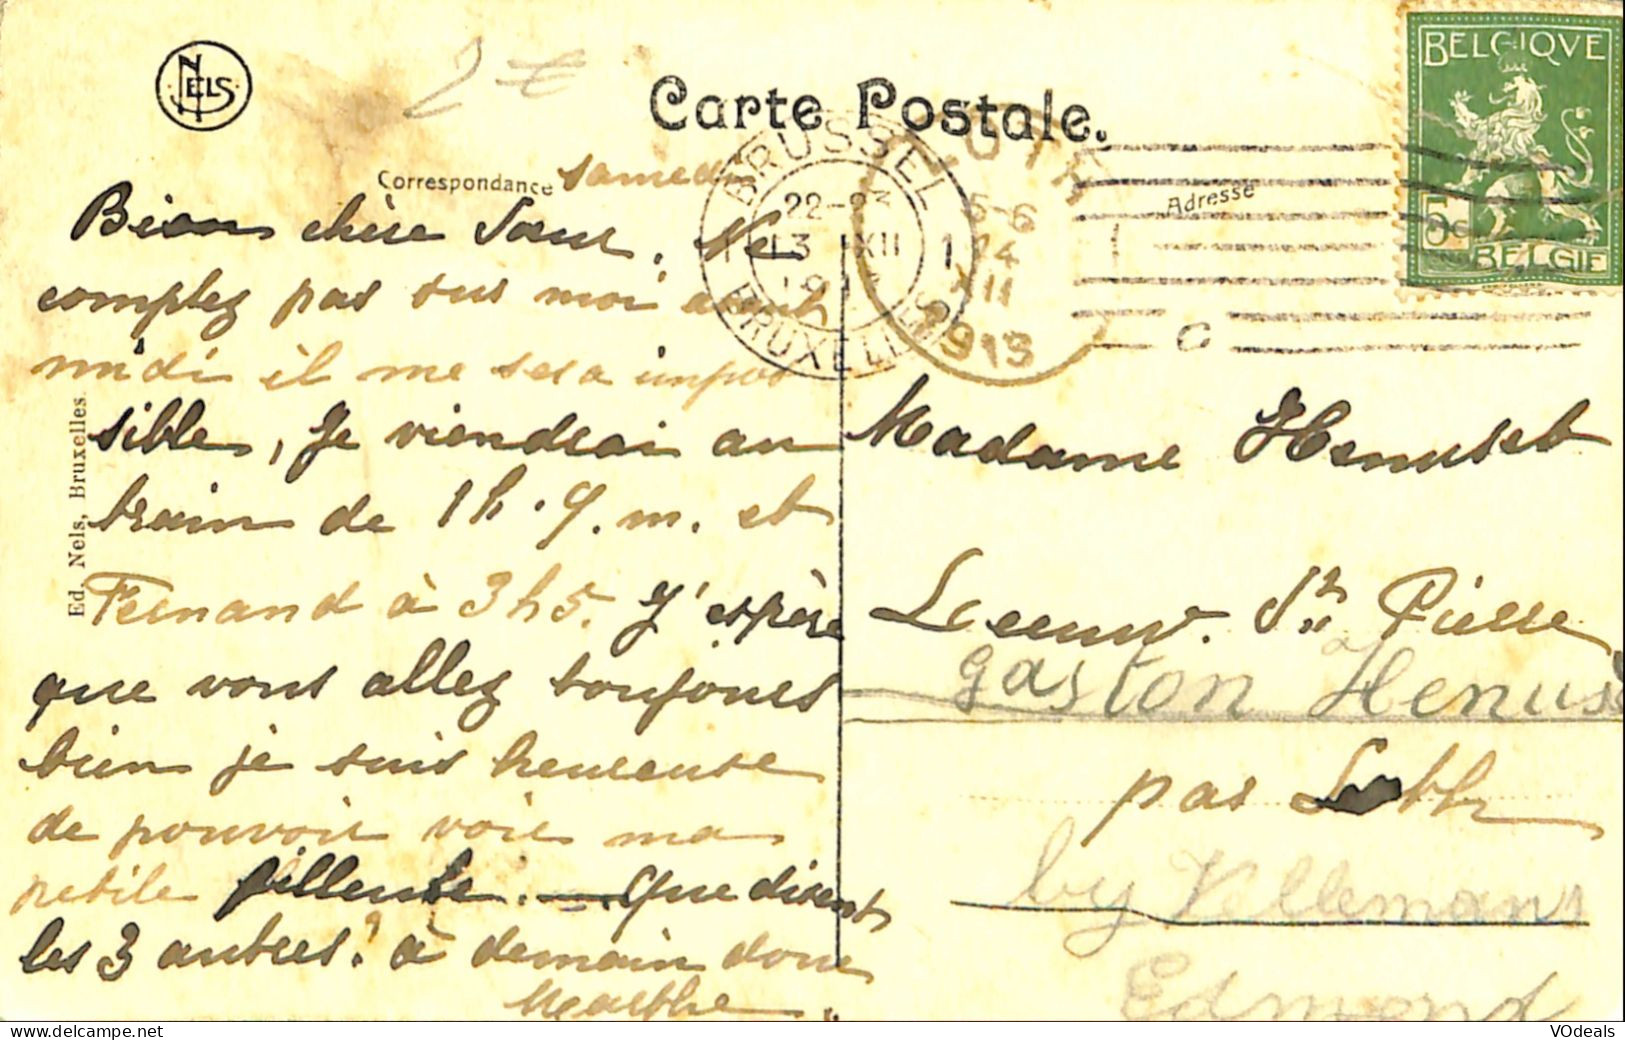 NELS
2 €
Carte Postale.
BELGIQUE
5c
BELGIE
Correspondance
Adresse
samedi
BRUSSEL
22-2
13 XII
BRUXELLES
5-6
14
XII
1913
Bien chère Sœur. Ne
comptez pas sur moi avant
midi il me sera impos
sible, Je viendrai au
train de 1 h. 9. m. et
Fernand à 3 h 5. J'espère
que vous allez toujours
bien je suis heureuse
de pouvoir voir ma
petite filleule. — Que disent
les 3 autres? à demain donc
Marthe.
Ed. Nels, Bruxelles.
Madame Henuset
Leeuw. St Pierre
gaston Henus
par Loth
by Vellemans
Edmond
VOdeals